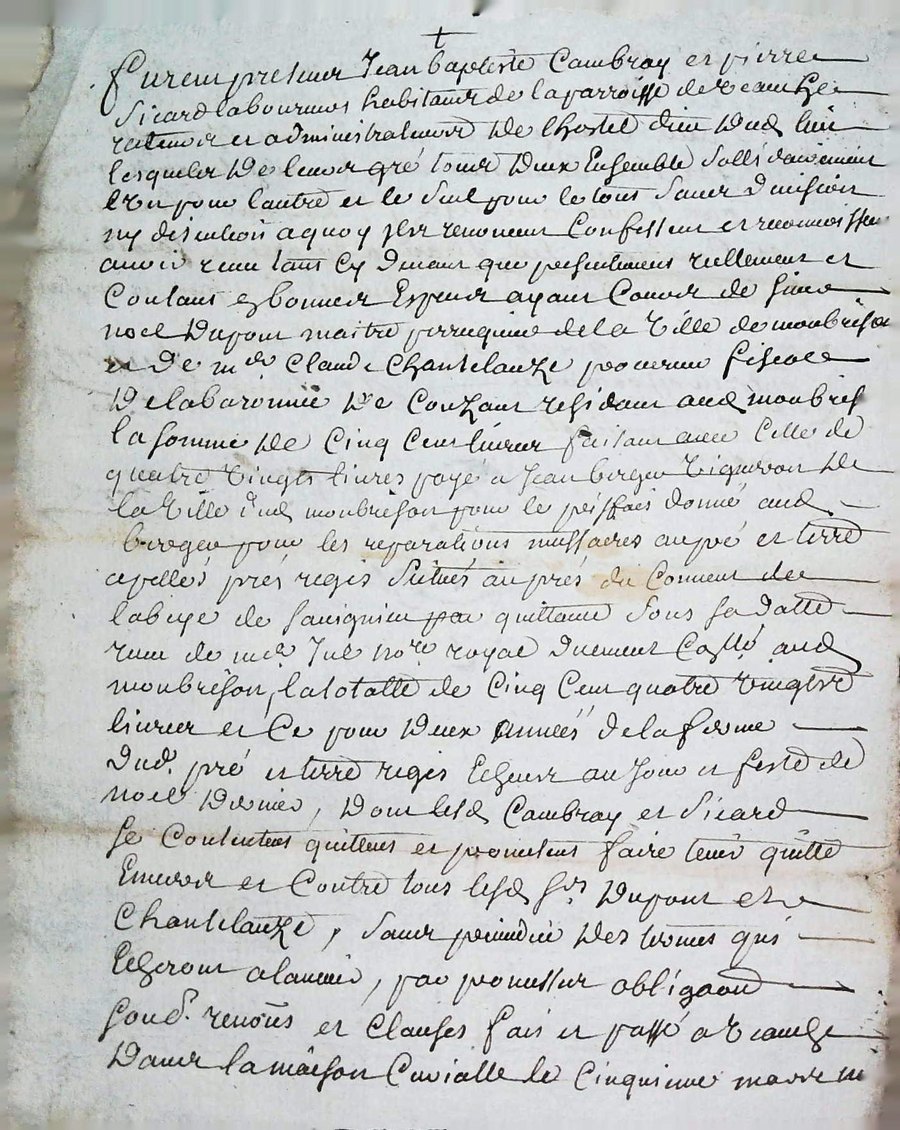 †
furent presens Jean baptiste Cambray et pierre
Sicard laboureurs habitans de la parroisse de veauche
recteurs et administrateurs de lhostel dieu dud lieu
lesquels de leurs gré tous deux Ensemble sollidairement
lun pour lautre et le seul pour le tous sans division
ny discution a quoy ils renoncent Confessent et reconnoissent
avoir receu tant Cy devant que presentement reellement et
Contans en bonnes Especes ayans Cours de sieur
noel Dupont maitre perruquier de la ville de monbrison
et de me Claude Chantelauze procureur fiscal
De la baronnie de Couzant residant aud monbrison
la somme de Cinq Cent livres faisant avec Celle de
quatre vingts livres payé a Jean berger vigneron de
la ville dud monbrison pour le prisfait donné aud
berger pour les reparations nessaires au pré et terre
apelles prés regis Situés auprés du Couvent de
labeye de Sauignieu par quittance Sous sa datte
receu de me not.re royal duement Collé aud
monbrison, la totalle de Cinq Cent quatre vingts
livres et Ce pour deux années de la ferme
Dud. pré et terre regis Echeus au jour et feste de
noel dernier, Dont lesd Cambray et Sicard
se Contentent quittent et promettent faire tenir quitte
Envers et Contre tous lesd srs Dupont et
Chantelauze, sans prejudice des termes qui
Echeront alavenir, par promesses obligaõns
soud. renoñs et clauses fait et passé a veauche
Dans la maison Curialle le Cinquieme mars mi